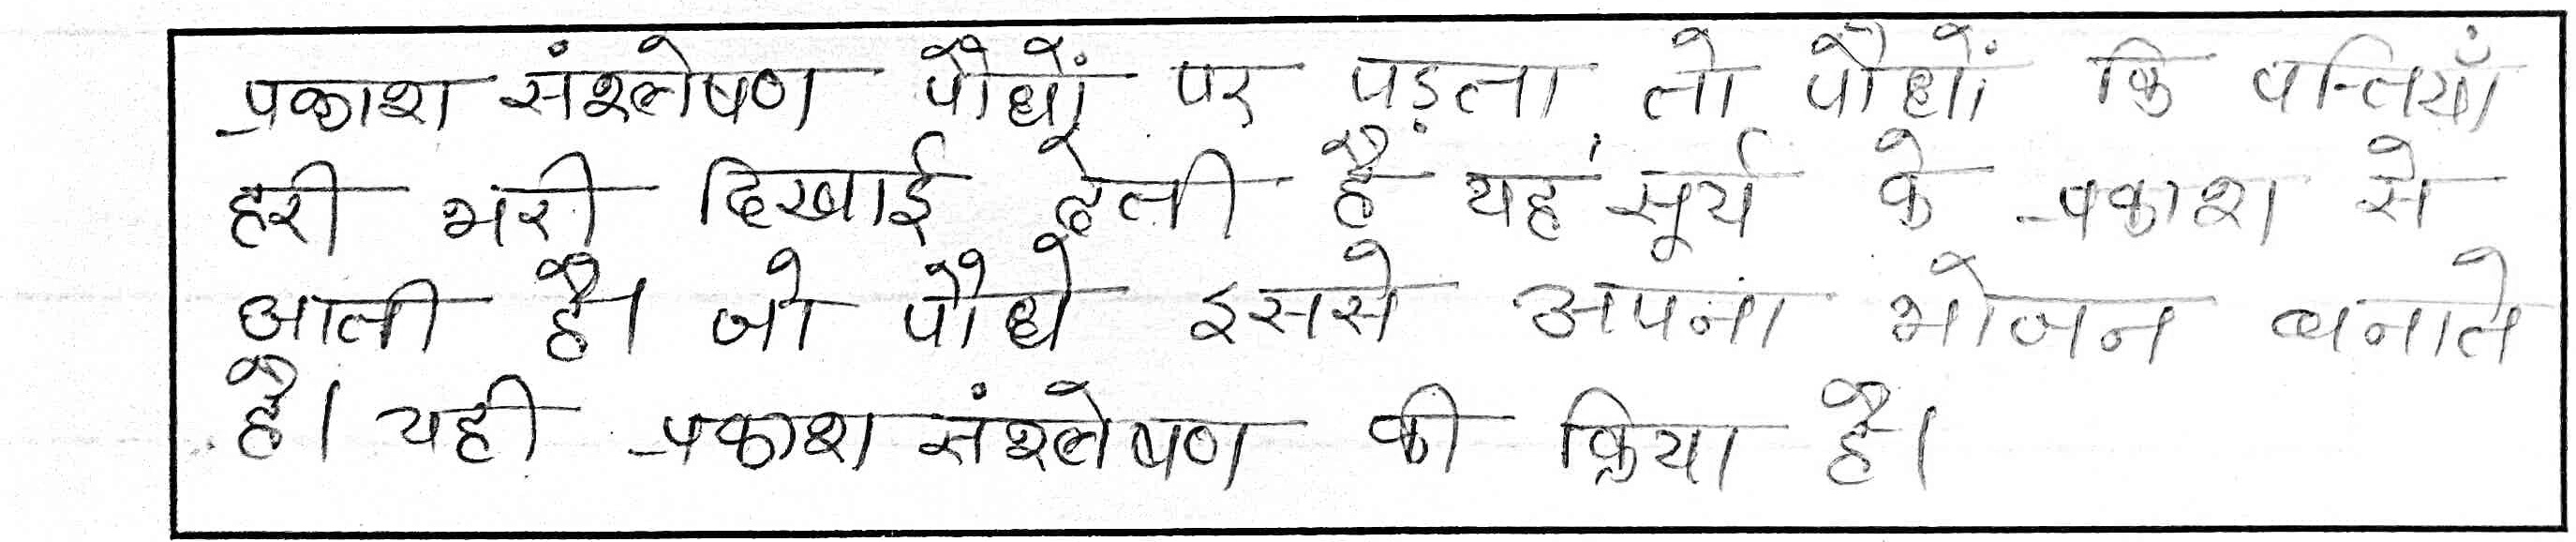 प्रकाश संश्लेषण पौधों पर पड़ता तो पौधों कि पत्तियाँ
हरी भरी दिखाई देती है यह सूर्य के प्रकाश से
आती है। जो पौधे इससे अपना भोजन बनाते
है। यही प्रकाश संश्लेषण की क्रिया है।